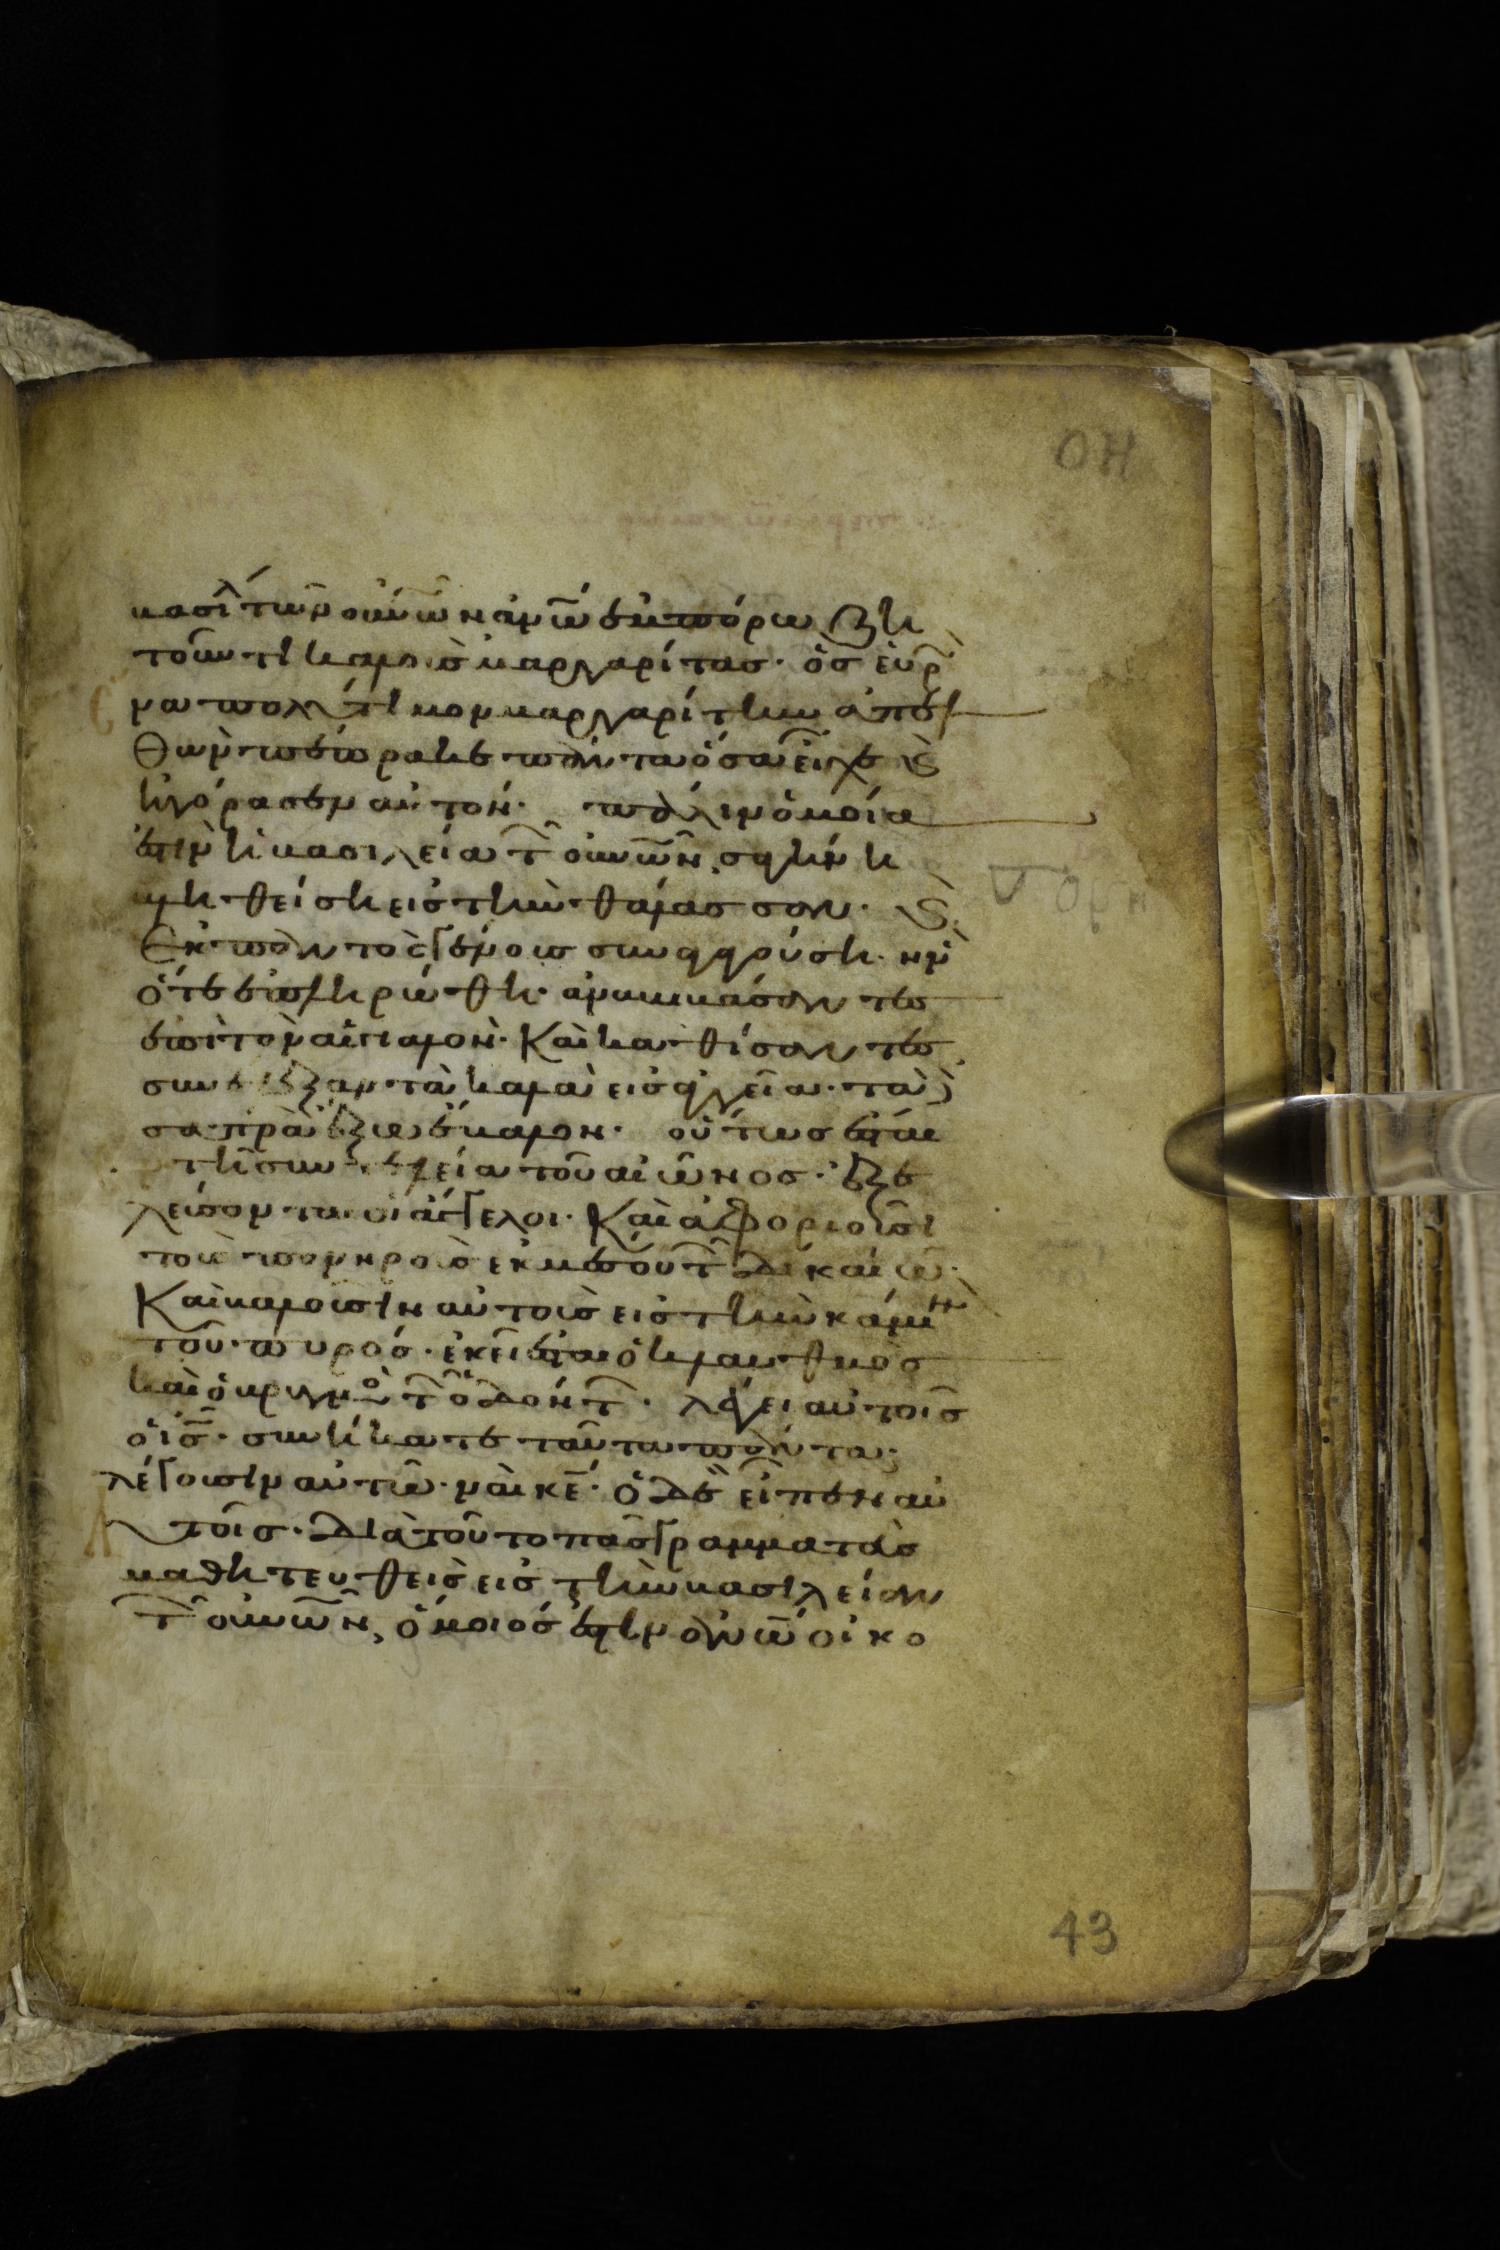 ΟΗ
βασιλ τῶν οὐνῶν ἀνω ἐμπόρω ζη
τοῦντι καλοὺς μαργαρίτας· ὃς εὑρ
να πολύτιμον μαργαρίτην ἀπελ
θὼν πέπρακε πάντα ὅσα εἶχε καὶ
ἠγόρασεν αὐτόν· πάλιν ὁμοία
ἐστὶν ἡ βασιλεία τῶν οὐνῶν, σαγήνη
βληθείσῃ εἰς τὴν θάλασσαν· καὶ
ἐκ παντὸς γένους συναγαγούση· ἣν
ὅτε ἐπληρώθη· ἀναβιβάσαντες
ἐπὶ τὸν αἰγιαλόν· καὶ καθίσαντες
συνέλεξαν τὰ καλὰ εἰς ἀγγεῖα· τὰ δὲ
σαπρὰ ἔξω ἔβαλον· οὕτως ἔσται
τῇ συντελεία τοῦ αἰῶνος· ἐξε
λεύσονται οἱ ἄγγελοι· καὶ ἀφοριοῦσι
τοὺς πονηροὺς ἐκ μέσου τῶν δικαίων·
καὶ βαλοῦσιν αὐτοὺς εἰς τὴν κάμιν
τοῦ πυρός· ἐκεῖ ἔσται ὁ κλαυθμὸς
καὶ ὁ βρυγμὸς τῶν ὀδόντ· λέγει αὐτοῖς
ὁ ις· συνήκατε ταῦτα πάντα;
λέγουσιν αὐτῶ· ναὶ κε· ὁ δὲ εἶπεν αὐ
τοῖς· διὰ τοῦτο πᾶς γραμματεὺς
μαθητευθεὶς εἰς τὴν βασιλείαν
τῶν οὐνῶν, ὅμοιός ἐστιν ἀνω οἰκο
43